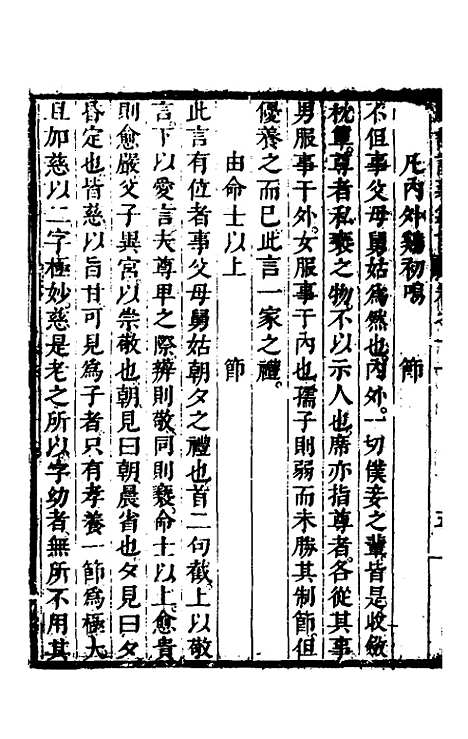 凡內外雞初鳴　節
不但事父母舅姑爲然也內外一切僕妾之輩皆是收斂
枕簟尊者私褻之物不以示人也席亦指尊者各從其事
男服事于外女服事于內也孺子則弱而未勝其制節但
優養之而已此言一家之禮
由命士以上　節
此言有位者事父母舅姑朝夕之禮也首二句截上以敬
言下以愛言夫尊卑之際辨則敬同則褻命士以上愈貴
則愈嚴父子異宮以崇敬也朝見曰朝晨省也夕見曰夕
昏定也皆慈以旨甘可見爲子者只有孝養一節爲極大
且加慈以二字極妙慈是老之所以字幼者無所不用其